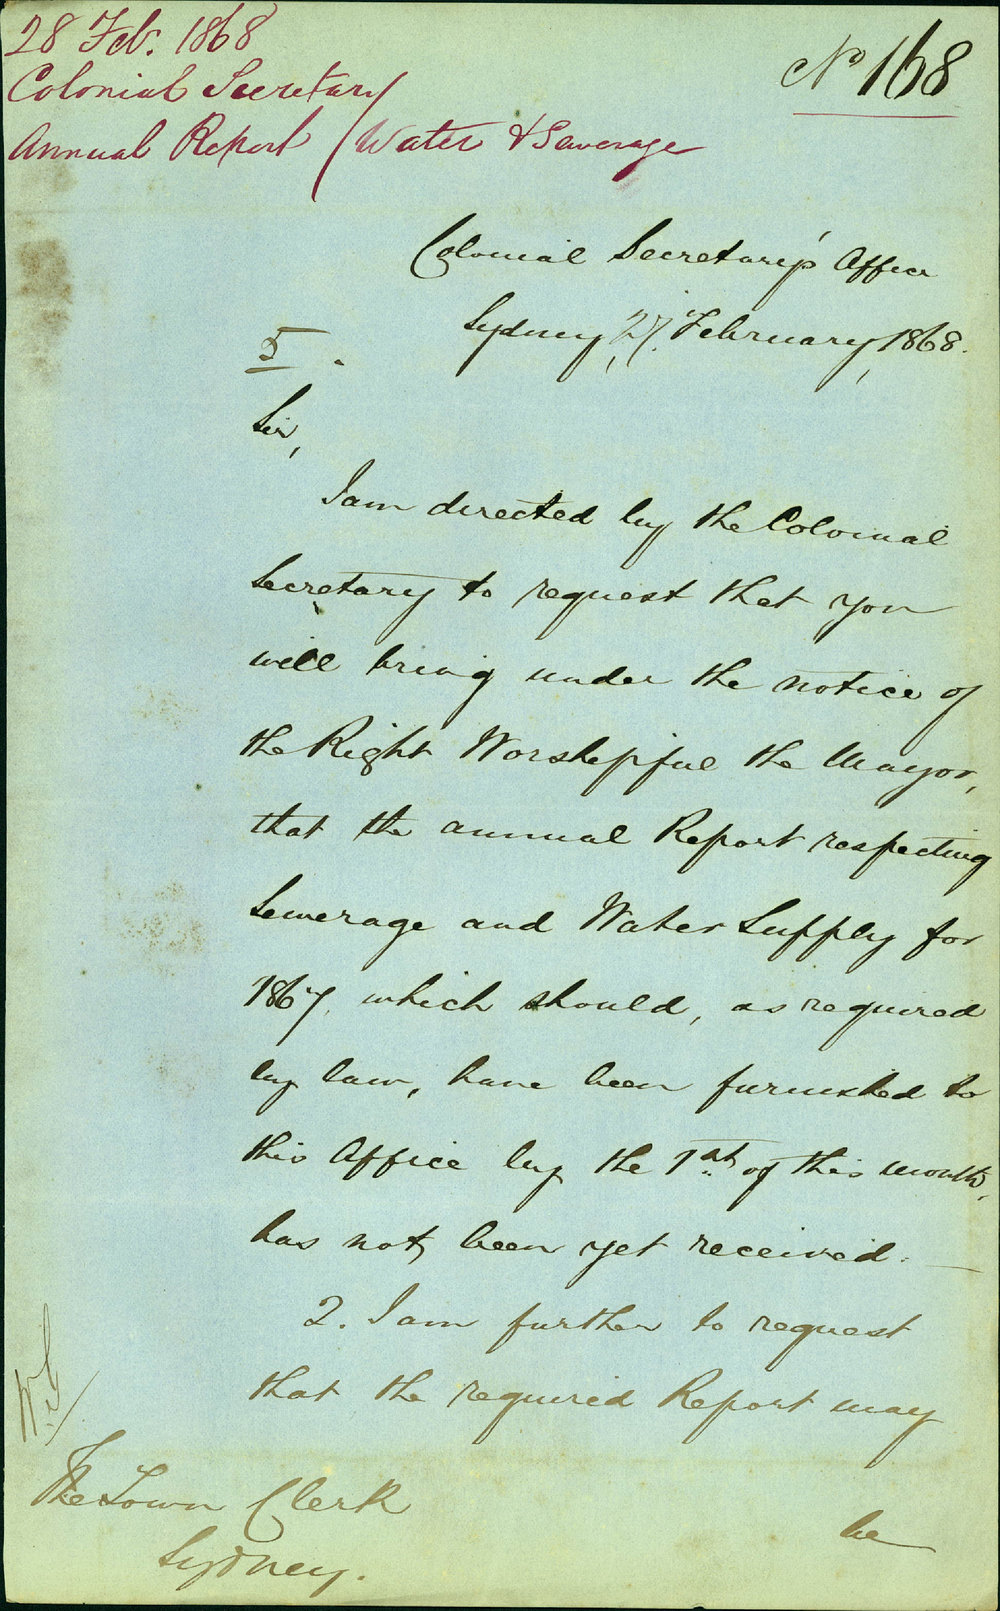 28 Feb. 1868
No 168
Colonial Secretary
Annual Report / Water & Sewerage
Colonial Secretary's Office
Sydney, 27. February, 1868.
Sir,
I am directed by the Colonial
Secretary to request that you
will bring under the notice of
the Right Worshipful the Mayor,
that the annual Report respecting
Sewerage and Water Supply for
1867, which should, as required
by law, have been furnished to
this Office by the 1st of this month,
has not been yet received.
2. I am further to request
that the required Report may
be
The Town Clerk
Sydney.